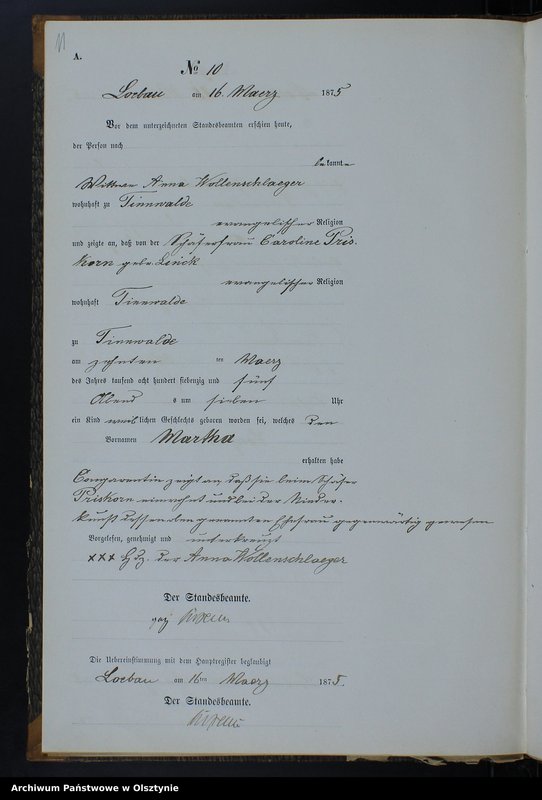 11
A.
№ 10
Loebau am 16 Maerz 1875
Vor dem unterzeichneten Standesbeamten erschien heute,
der Person nach
bekannte
Wittwe Anna Wollenschlaeger
wohnhaft zu Tinnwalde
evangelischer Religion
und zeigte an, daß von der Schäferfrau Caroline Pris-
korn geb. Linck
evangelischer Religion
wohnhaft Tinnwalde
zu Tinnwalde
am zehnten ten Maerz
des Jahres tausend acht hundert siebenzig und fünf
Abend s um sieben Uhr
ein Kind weiblichen Geschlechts geboren worden sei, welches den
Vornamen Martha
erhalten habe
Comparentin zeigt an daß sie beim Schäfer
Priskorn einwohnt und bei der Nieder-
kunft dessen oben genannten Ehefrau gegenwärtig gewesen
Vorgelesen, genehmigt und unterkreuzt
xxx Hdz. der Anna Wollenschlaeger
Der Standesbeamte.
gez
Die Uebereinstimmung mit dem Hauptregister beglaubigt
Loebau am 16ten Maerz 1875.
Der Standesbeamte.
Archiwum Państwowe w Olsztynie